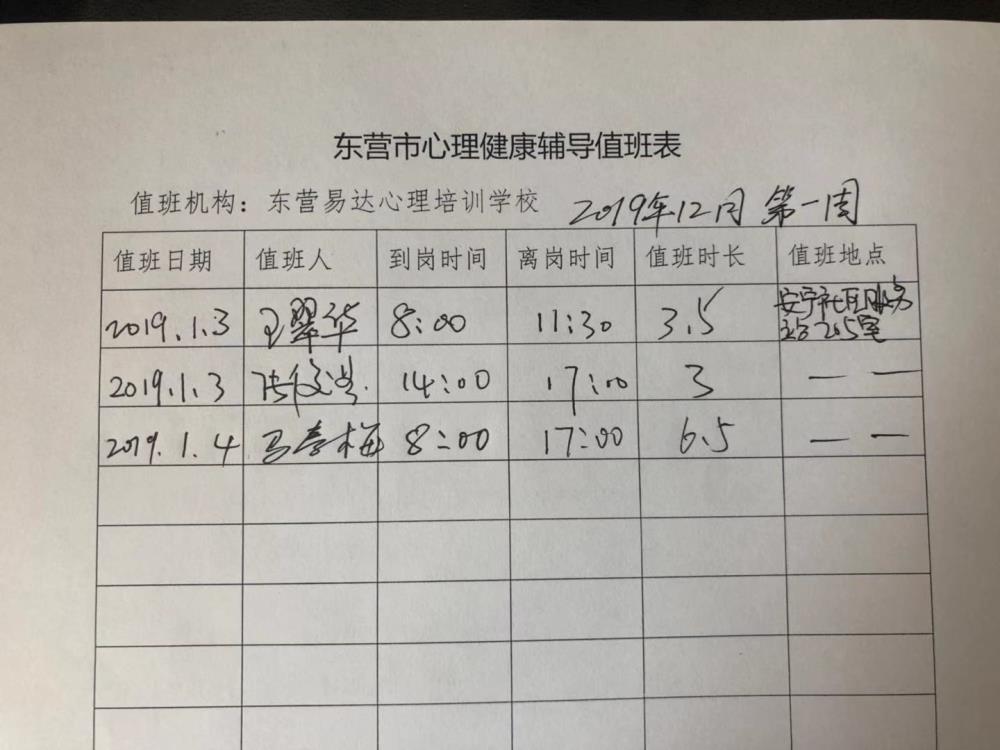 东营市心理健康辅导值班表
值班机构：东营易达心理培训学校 2019年12月 第一周
值班日期 值班人 到岗时间 离岗时间 值班时长 值班地点
2019.1.3 王翠华 8:00 11:30 3.5 安宁社区服务
205室
2019.1.3 14:00 17:00 3 — —
2019.1.4 马春梅 8:00 17:00 6.5 — —